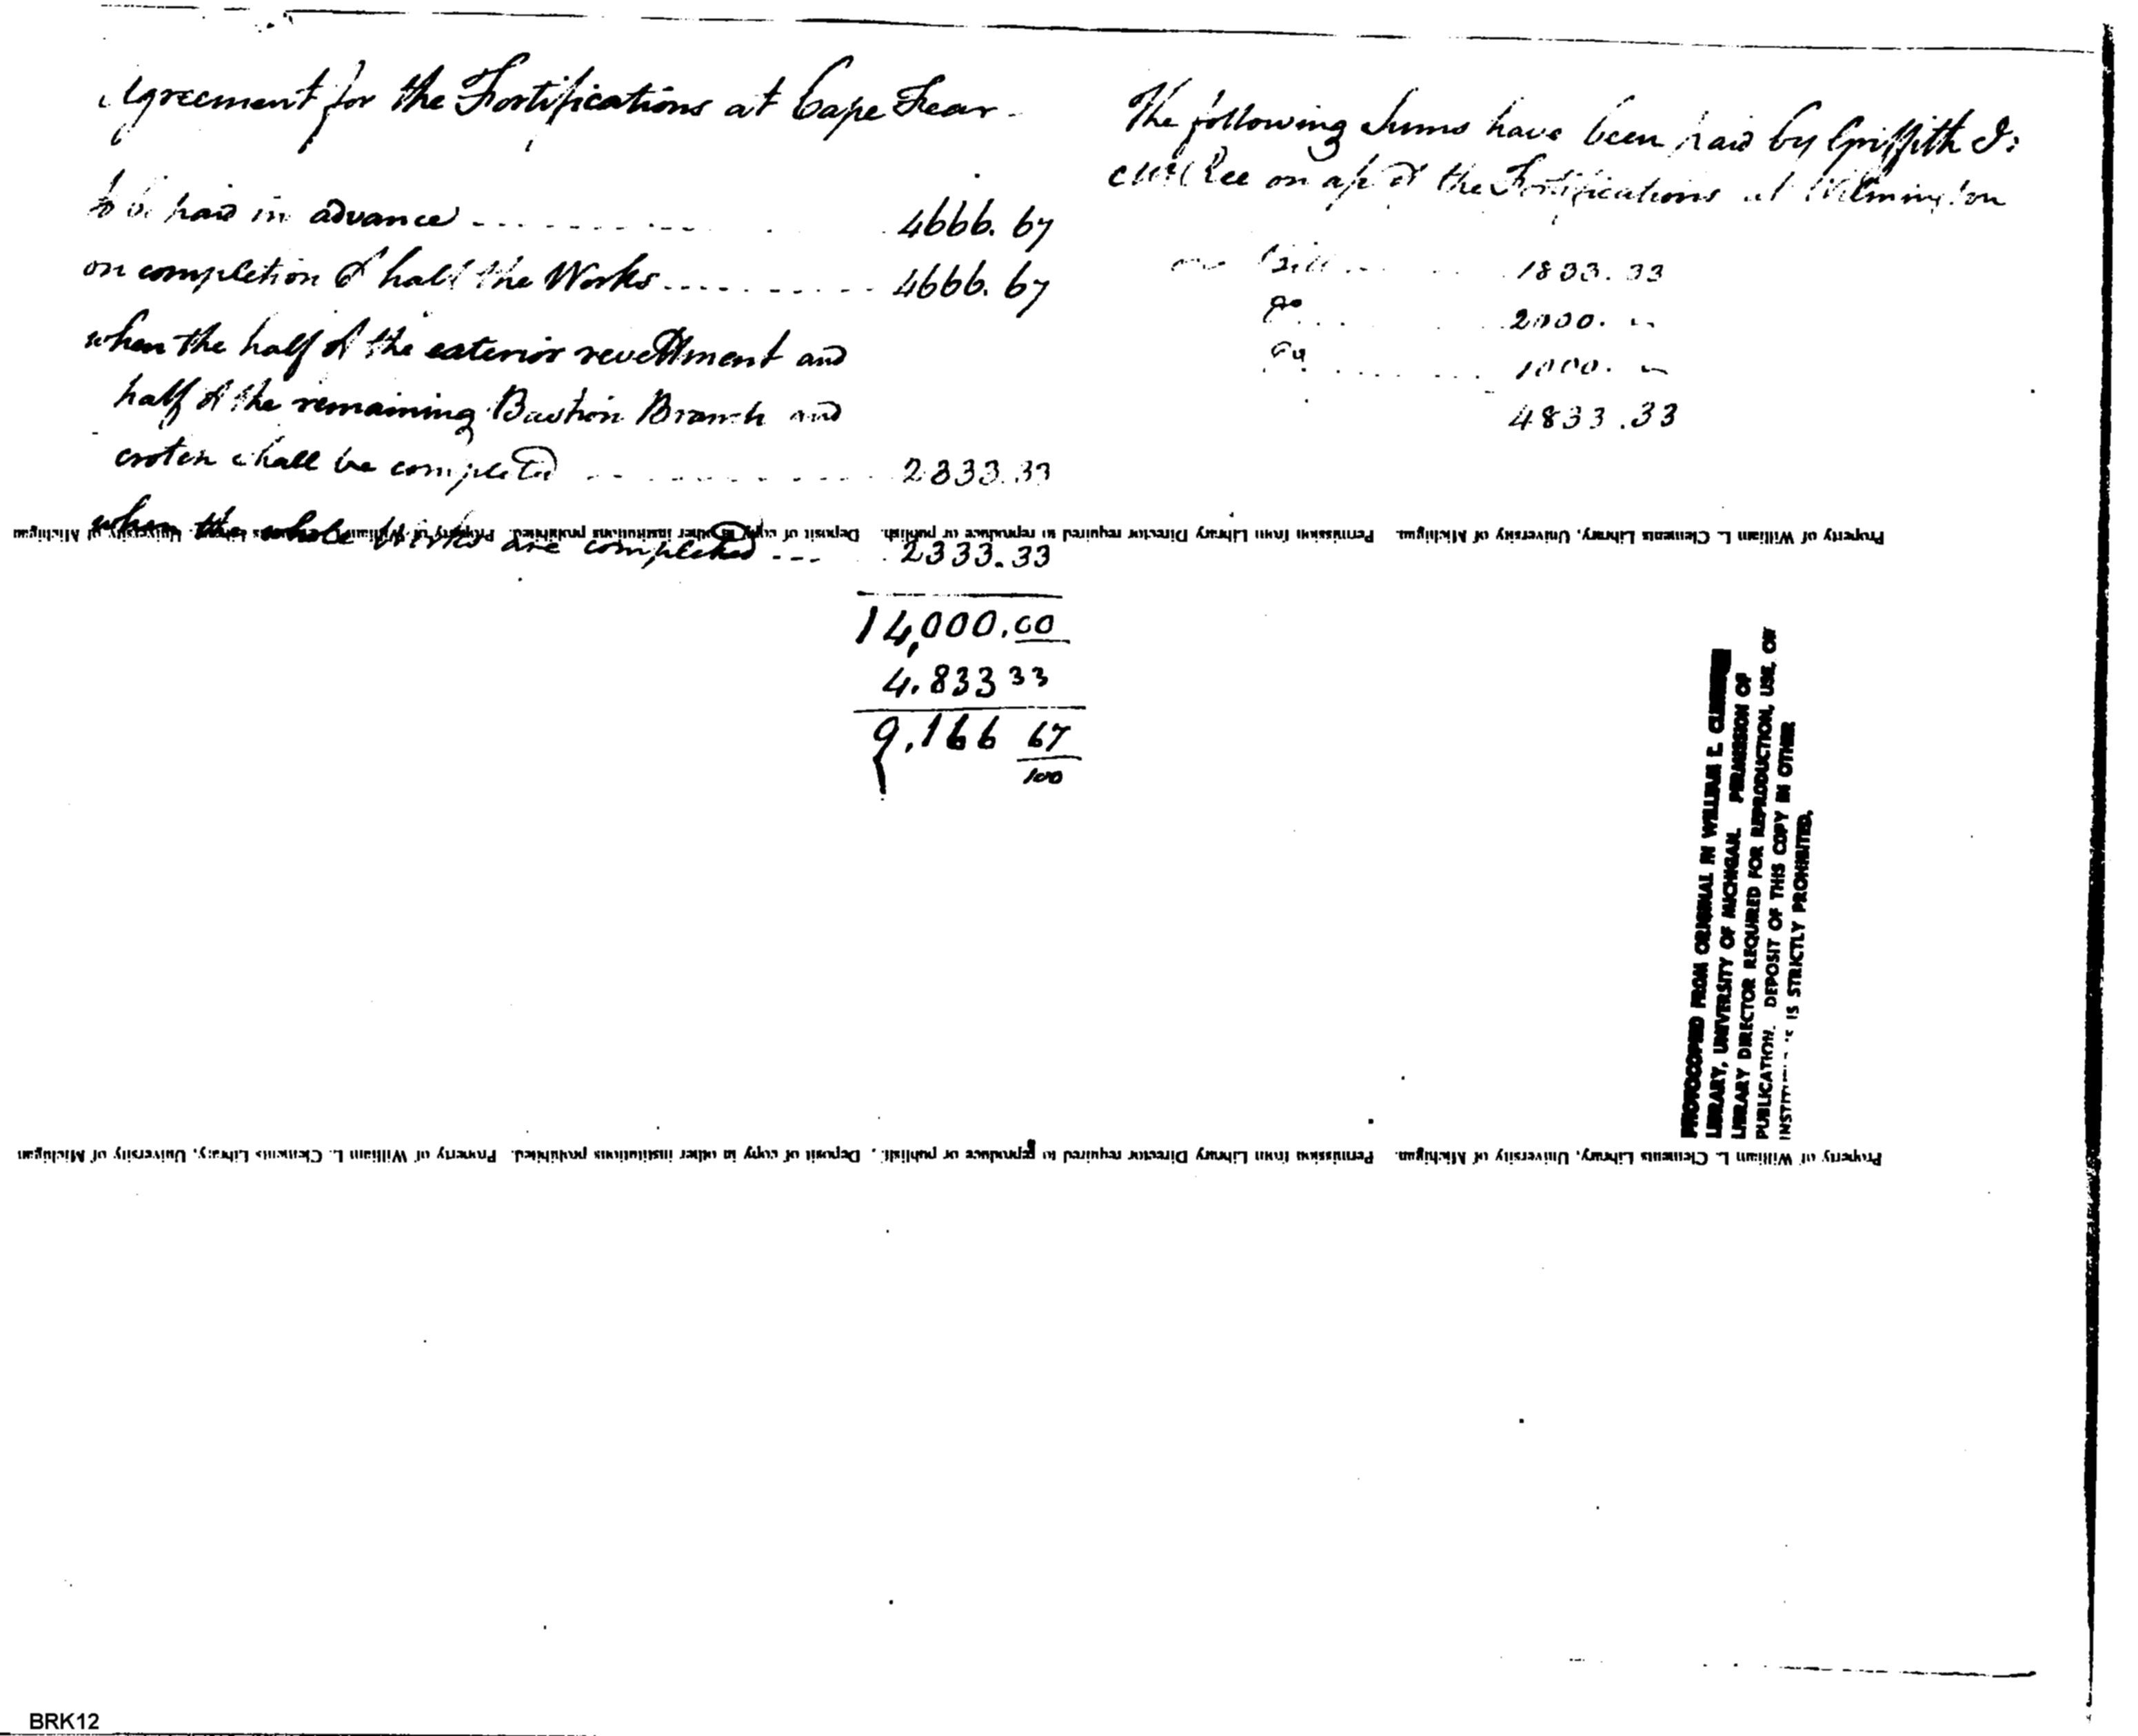 Agreement for the Fortifications at Cape Fear.
to be paid in advance ............ 4666.67
on completion of half the Works .......... 4666.67
when the half of the exterior revettment and
half of the remaining Bastion Branch and
shall be completed ............ 2333.33
when the whole Works are completed ... 2333.33
14,000.00
4.833 33
9,166 67/100
The following Sums have been paid by Griffith J:
McRee on a/c of the Fortifications at Wilmington
one bill ... 1833.33
Do ... 2000. "
Do ... 1000. "
4833.33
Property of William L. Clements Library, University of Michigan. Permission from Library Director required to reproduce or publish. Deposit of copy in other institutions prohibited. Property of William L. Clements Library, University of Michigan
PHOTOCOPIED FROM ORIGINAL IN WILLIAM L.
LIBRARY, UNIVERSITY OF MICHIGAN. PERMISSION OF
LIBRARY DIRECTOR REQUIRED FOR REPRODUCTION, USE, OR
PUBLICATION. DEPOSIT OF THIS COPY IN OTHER
IS STRICTLY PROHIBITED.
Property of William L. Clements Library, University of Michigan. Permission from Library Director required to reproduce or publish. Deposit of copy in other institutions prohibited. Property of William L. Clements Library, University of Michigan
BRK12